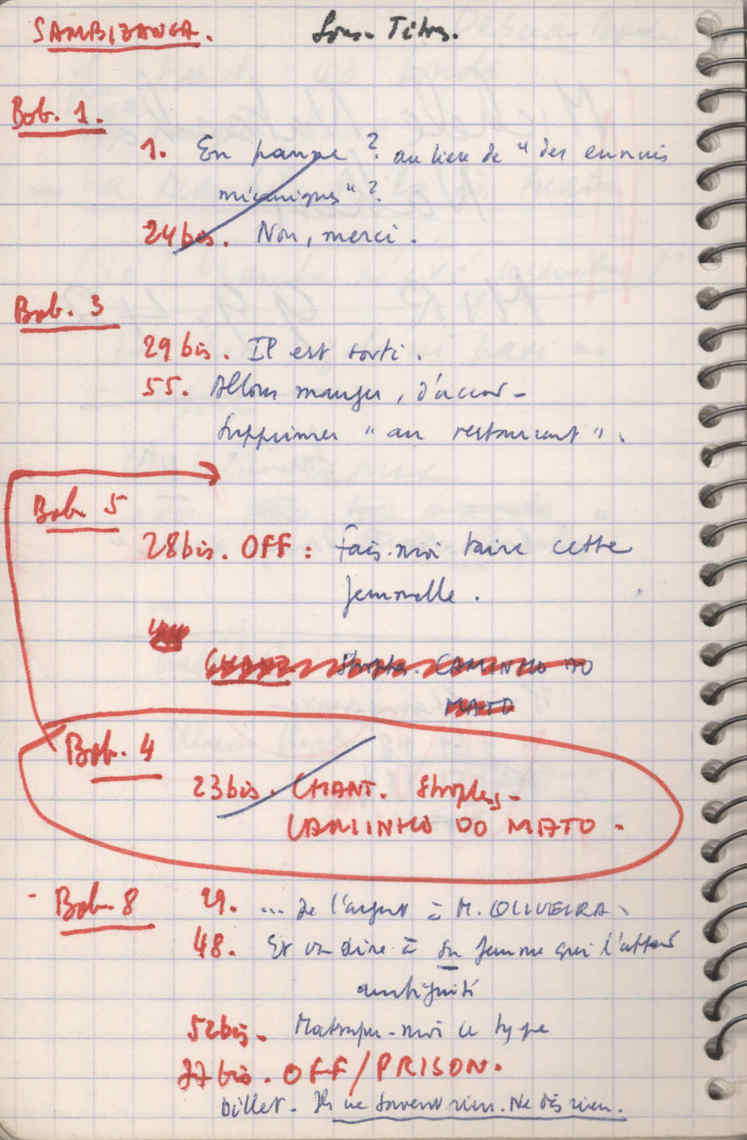 SAMBIZANGA. Sous-Titres.
Bob. 1.
1. En panne ? au lieu de "des ennuis
mécaniques" ?
24 bis. Non, merci.
Bob. 3
29 bis. Il est sorti.
55. Allons manger, d'accord.
Supprimer "au restaurant".
Bob. 5
28 bis. OFF : Fais-moi taire cette
femmelle.
CHANT CAMINHO DO
MATO
Bob. 4
23 bis. CHANT. Strophes.
CAMINHO DO MATO.
- Bob. 8 29. ... de l'argent à M. OLIVEIRA.
48. Et va dire à sa femme qui l'attend
ambiguité
52 bis. -moi ce type
77 bis. OFF/PRISON.
billet. Ils ne savent rien. Ne dis rien.